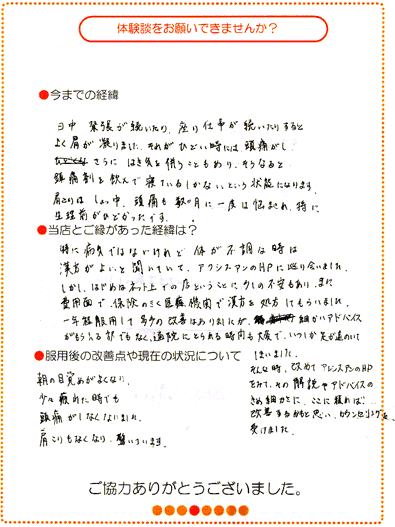 体験談をお願いできませんか？
●今までの経緯
日中 緊張が続いたり、座り仕事が続いたりすると
よく肩が凝りました。それがひどい時には頭痛がし、
さらに はき気を伴うこともあり、そうなると
鎮痛剤を飲んで寝ているしかないという状態になります。
肩こりは しょっ中、頭痛も数ヶ月に一度は悩まされ、特に
生理前がひどかったです。
●当店とご縁があった経緯は？
特に病気ではないけれど 体が不調な時は
漢方がよいと聞いていて、アクシスアンのHPに巡り会いました。
しかし、はじめはネット上での店ということに少しの不安もあり、また
費用面で、保険のきく医療機関で漢方を処方してもらいました。
一年程服用して多少の改善はありましたが、細かいアドバイス
がもらえる訳でもなく、通院にとられる時間も大変で、いつしか足が遠のいて
しまいました。
そんな時、改めてアクシスアンのHP
をみて、その解説やアドバイスの
きめ細かさに、ここに頼れば
改善するかもと思い、カウンセリングを
受けました。
●服用後の改善点や現在の状況について
朝の目覚めがよくなり、
少々疲れた時でも
頭痛がしなくなりました。
肩こりもなくなり、驚いています。
ご協力ありがとうございました。